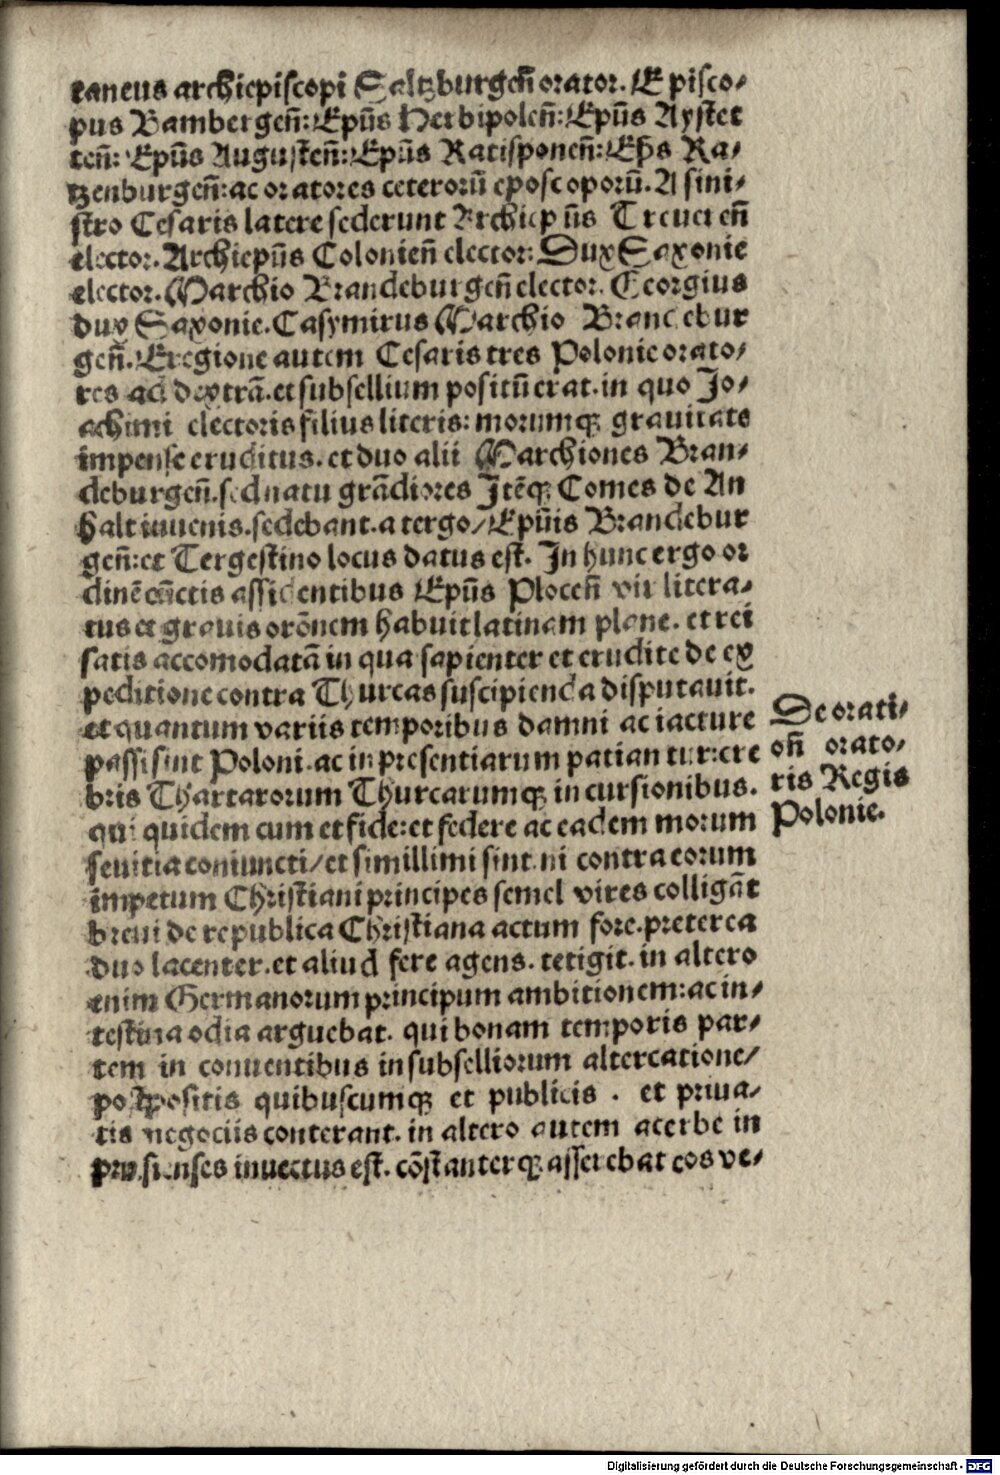 taneus archiepiscopi Saltzburgeñ orator. Episco-
pus Bambergeñ: Epũs Herbipoleñ: Epũs Aystet
teñ: Epũs Augusteñ: Epũs Ratisponeñ: Ep̃s Ra-
tzenburgeñ: ac oratores ceterorũ eposcoporũ. A sini-
stro Cesaris latere sederunt Archiepũs Treuereñ
elector. Archiepũs Colonieñ elector: Dux Saxonie
elector. Marchio Brandeburgeñ elector. Georgius
dux Saxonie. Casymirus Marchio Brandebur
geñ. Eregione autem Cesaris tres Polonie orato-
res ad dextrã. et subsellium positũ erat. in quo Jo-
achimi electoris filius literis: morumqʒ grauitate
impense eruditus. et duo alii Marchiones Bran-
deburgeñ. sed natu grãdiores Jtẽqʒ Comes de An
halt iuuenis. sedebant. a tergo/ Epũis Brandebur
geñ: et Tergestino locus datus est. In hunc ergo or
dinẽ cũctis assidentibus Epũs Ploceñ vir litera-
tus et grauis orõnem habuit latinam plane. et rei
satis accomodatã in qua sapienter et erudite de ex
peditione contra Thurcas suscipienda disputauit.
et quantum variis temporibus damni ac iacture
passi sint Poloni. ac in presentiarum patiantur: cre
bris Thartarorum Thurcarumqʒ incursionibus.
qui quidem cum et fide: et federe ac eadem morum
seuitia coniuncti/ et simillimi sint. ni contra eorum
impetum Christiani principes semel vires colligãt
breui de republica Christiana actum fore. preterea
duo lacenter. et aliud fere agens. tetigit. in altero
enim Germanorum principum ambitionem: ac in-
testina odia arguebat. qui bonam temporis par-
tem in conuentibus in subselliorum altercatione/
postpositis quibuscumqʒ et publicis . et priua-
tis negociis conterant. in altero autem acerbe in
prusienses inuectus est. cõstanterqʒ asserebat eos ve-
De orati-
oñ orato-
ris Regis
Polonie.
Digitalisierung gefördert durch die Deutsche Forschungsgemeinschaft - DFG